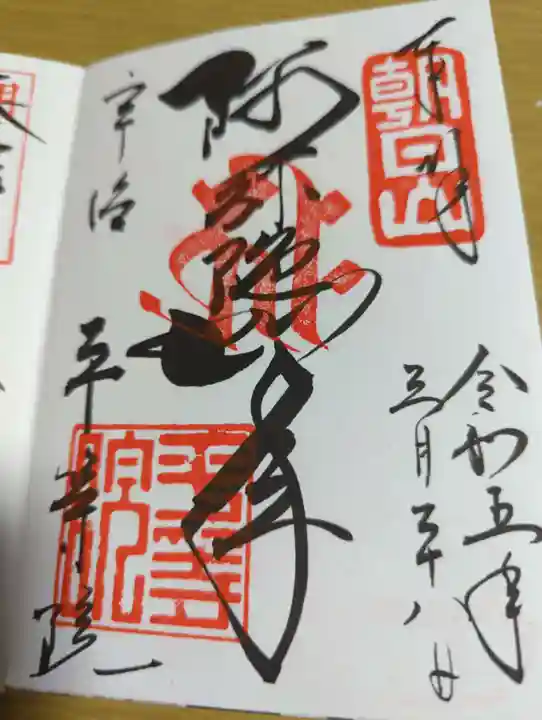 奉拝
朝日山
令和五年
三月二十八日
阿弥陀如来
宇治
平等院
平等院